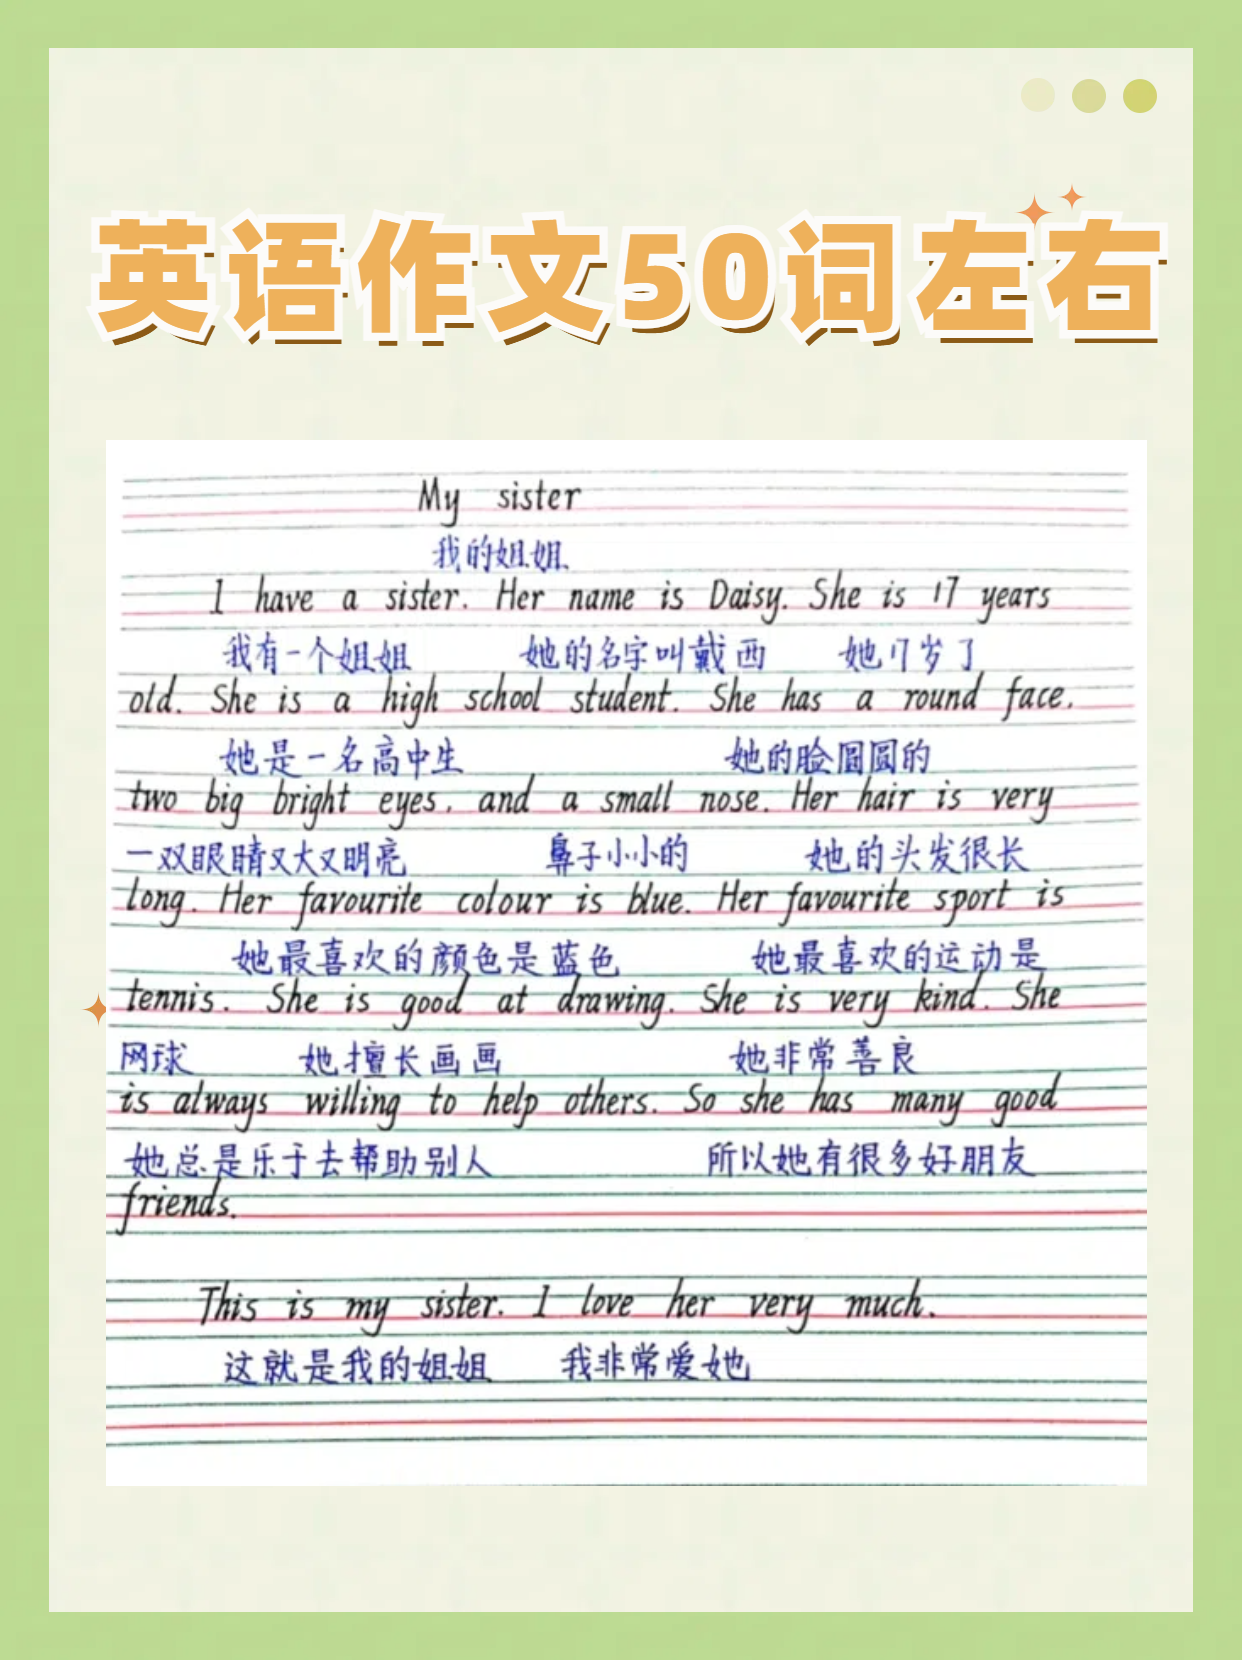 英语作文50词左右
My sister
我的姐姐
I have a sister. Her name is Daisy. She is 17 years
我有一个姐姐 她的名字叫戴西 她17岁了
old. She is a high school student. She has a round face.
她是一名高中生 她的脸圆圆的
two big bright eyes. and a small nose. Her hair is very
一双眼睛又大又明亮 鼻子小小的 她的头发很长
long. Her favourite colour is blue. Her favourite sport is
她最喜欢的颜色是蓝色 她最喜欢的运动是
tennis. She is good at drawing. She is very kind. She
网球 她擅长画画 她非常善良
is always willing to help others. So she has many good
她总是乐于去帮助别人 所以她有很多好朋友
friends.
This is my sister. I love her very much.
这就是我的姐姐 我非常爱她